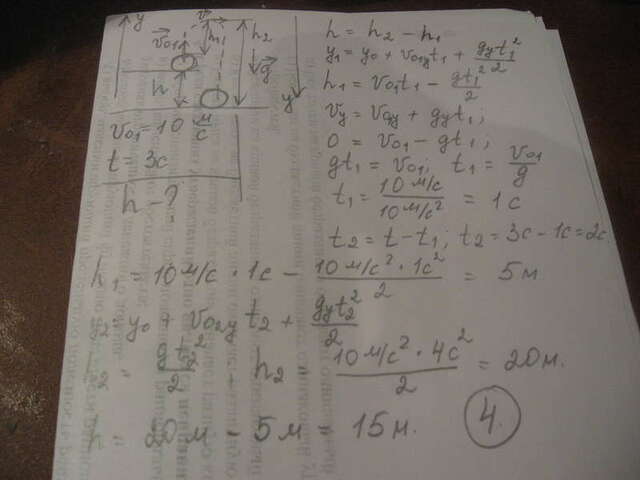 y v⃗ h₂
v⃗₀₁ h₁ g⃗
h y
v₀₁ = 10 м/с
t = 3с
h - ?
h = h₂ - h₁
y₁ = y₀ + v₀₁yt₁ + gyt₁²/2
h₁ = v₀₁t₁ - gt₁²/2
vy = v₀y + gyt₁;
0 = v₀₁ - gt₁;
gt₁ = v₀₁; t₁ = v₀₁/g
t₁ = 10 м/с / 10 м/с² = 1 с
t₂ = t - t₁; t₂ = 3с - 1с = 2с
h₁ = 10 м/с · 1с - 10 м/с² · 1с² / 2 = 5 м
y₀ + v₀₂y t₂ + gyt₂²/2
h₂ = 10 м/с² · 4с² / 2 = 20 м.
h = 20 м - 5 м = 15 м. 4.